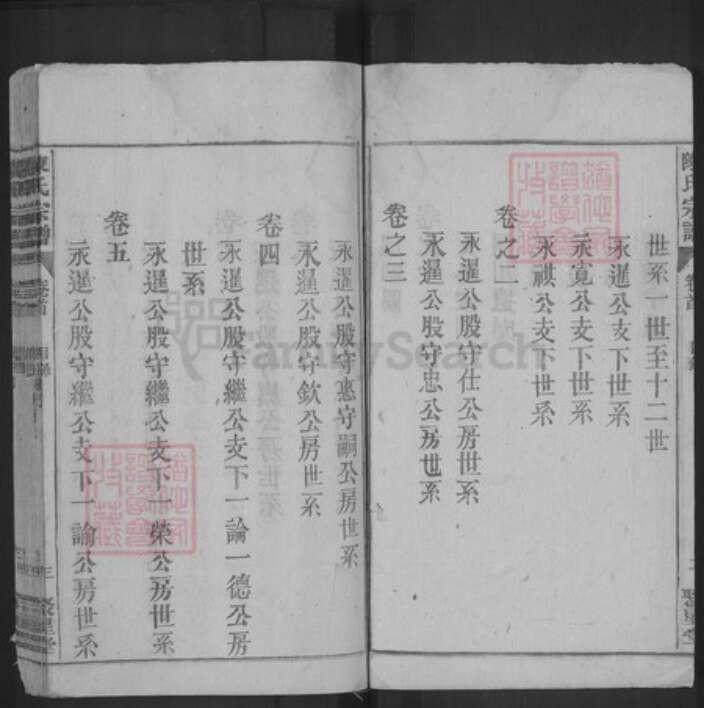 陳氏宗譜
卷首
世系一世至十二世
永暹公支下世系
永寬公支下世系
永祺公支下世系
卷之二
永暹公股守仕公房世系
永暹公股守忠公房世系
卷之三
永暹公股守惠守嗣公房世系
永暹公股守欽公房世系
卷四
永暹公股守繼公支下一論一德公房
世系
永暹公股守繼公支下一榮公房世系
卷五
永暹公股守繼公支下一諭公房世系
陳氏宗譜
卷首
目錄
三
聚星堂
FamilySearch